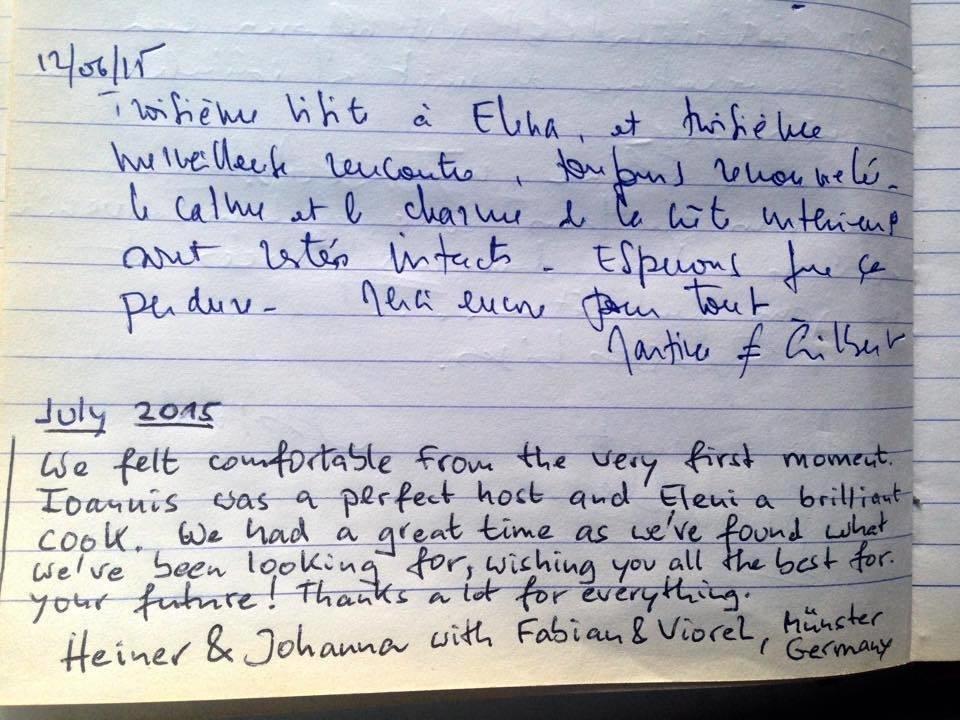 12/06/15
Troisième visite à Elena, et troisième
merveilleuse rencontre, toujours renouvelé.
le calme et le charme de la intérieure
sont restés intacts. Espérons que ça
perdure. Merci encore pour tout
Martine & Gilbert
July 2015
We felt comfortable from the very first moment.
Ioannis was a perfect host and Eleni a brilliant
cook. We had a great time as we've found what
we've been looking for, wishing you all the best for.
your future! Thanks a lot for everything.
Heiner & Johanna with Fabian & Viorel, Münster
Germany